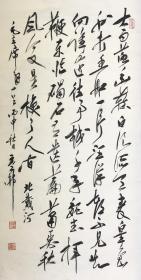 大雨落幽燕白浪滔天秦皇岛
外打鱼船一片汪洋都不见知
向谁边往事越千年魏武挥
鞭东临碣石有遗篇萧瑟秋
风今又是换了人间 北戴河
毛主席词